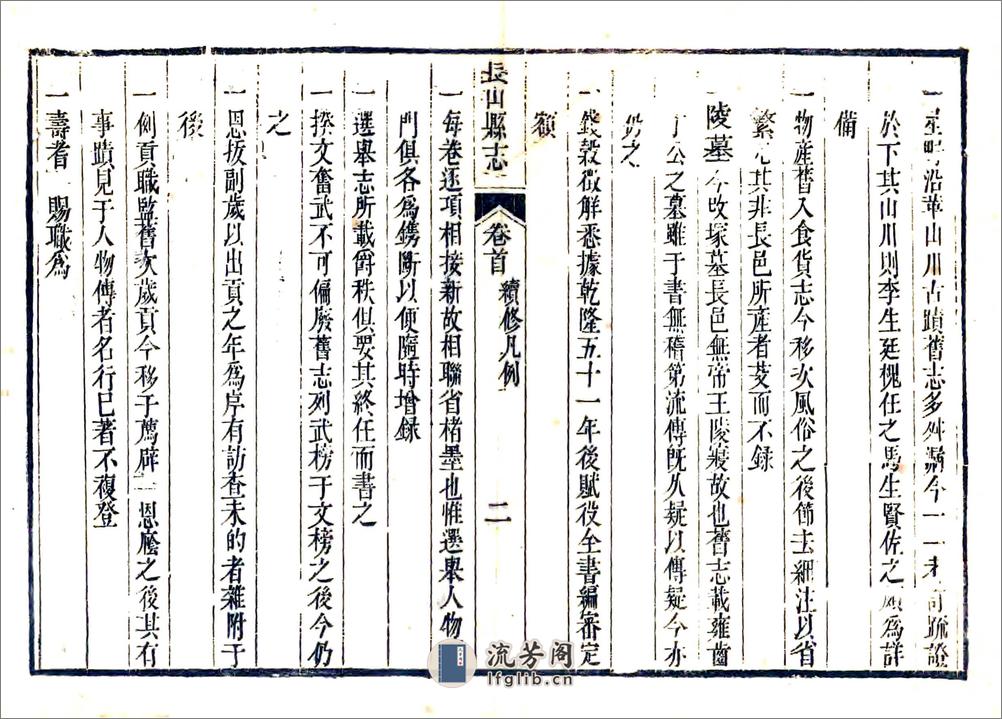 一星野沿革山川古蹟舊志多舛漏今一一考訂疏證
於下其山川則李生廷槐任之馬生賢佐之頗為詳
備
一物產舊入食貨志今移次風俗之後節去細注以省
繁冗其非長邑所產者芟而不錄
陵墓今改塚墓長邑無帝王陵寢故也舊志載雍齒
丁公之墓雖于書無稽第流傳旣久疑以傳疑今亦
仍之
一錢穀徵解悉據乾隆五十一年後賦役全書編審定
額
長山縣志
卷首
續修凡例
二
一每卷逐項相接新故相聯省楮墨也惟選舉人物
門俱各為鐫斷以便隨時增錄
一選舉志所載爵秩俱要其終任而書之
一揆文奮武不可偏廢舊志列武榜于文榜之後今仍
之
一恩拔副歲以出貢之年為序有訪查未的者雜附于
後
一例貢職監舊次歲貢今移于薦辟 恩廕之後其有
事蹟見于人物傳者名行已著不複登
一壽者 賜職為
流芳阁
lfglib.cn